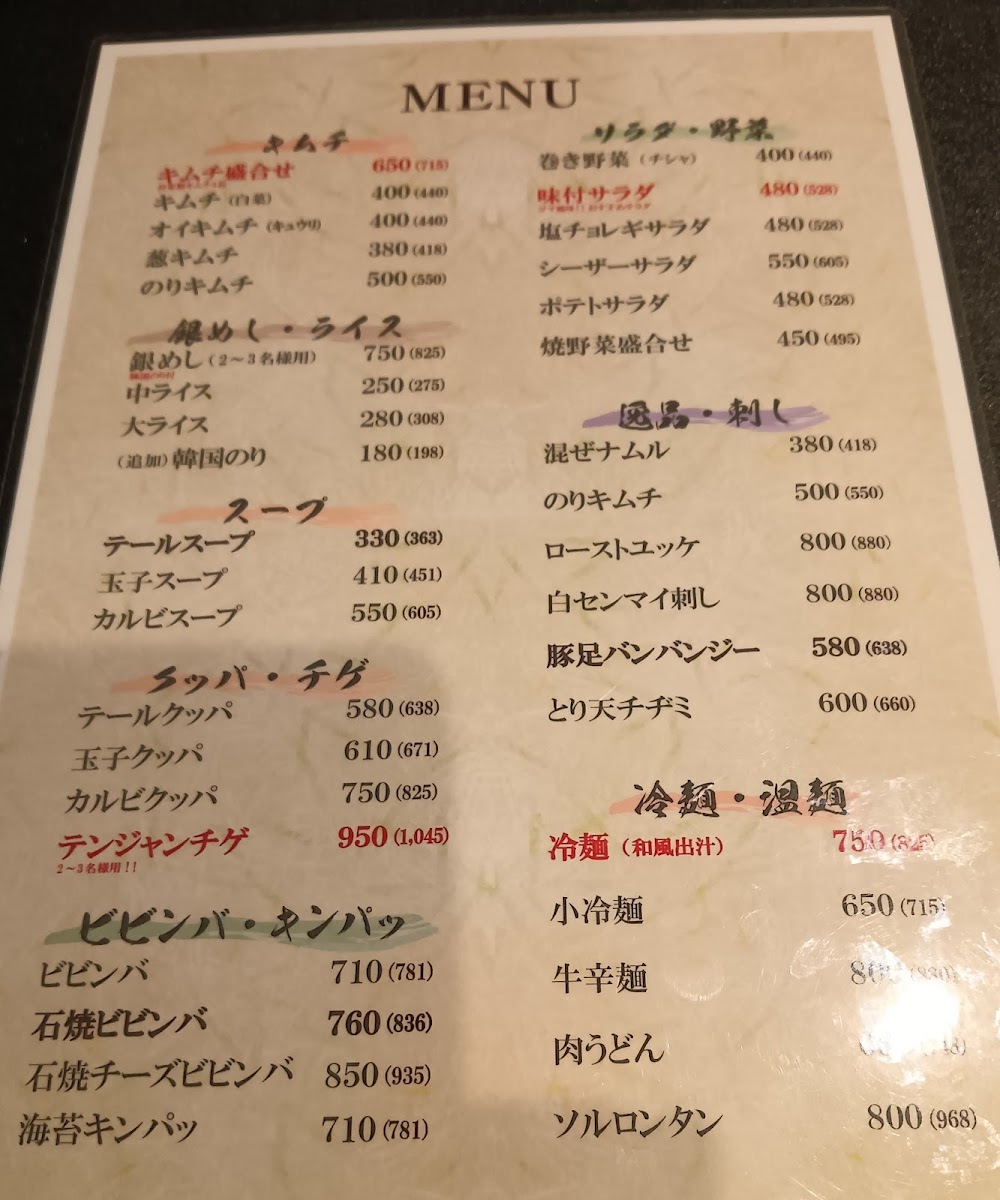 MENU
キムチ
キムチ盛合せ 650 (715)
キムチ (白菜) 400 (440)
オイキムチ (キュウリ) 400 (440)
葱キムチ 380 (418)
のりキムチ 500 (550)
銀めし・ライス
銀めし (2～3名様用) 750 (825)
中ライス 250 (275)
大ライス 280 (308)
(追加) 韓国のり 180 (198)
スープ
テールスープ 330 (363)
玉子スープ 410 (451)
カルビスープ 550 (605)
クッパ・チゲ
テールクッパ 580 (638)
玉子クッパ 610 (671)
カルビクッパ 750 (825)
テンジャンチゲ 950 (1,045)
2～3名様用!!
ビビンバ・キンパッ
ビビンバ 710 (781)
石焼ビビンバ 760 (836)
石焼チーズビビンバ 850 (935)
海苔キンパッ 710 (781)
サラダ・野菜
巻き野菜 (チシャ) 400 (440)
味付サラダ 480 (528)
塩チョレギサラダ 480 (528)
シーザーサラダ 550 (605)
ポテトサラダ 480 (528)
焼野菜盛合せ 450 (495)
逸品・刺し
混ぜナムル 380 (418)
のりキムチ 500 (550)
ローストユッケ 800 (880)
白センマイ刺し 800 (880)
豚足バンバンジー 580 (638)
とり天チヂミ 600 (660)
冷麺・温麺
冷麺 (和風出汁) 750 (825)
小冷麺 650 (715)
牛辛麺
肉うどん
ソルロンタン 800 (968)